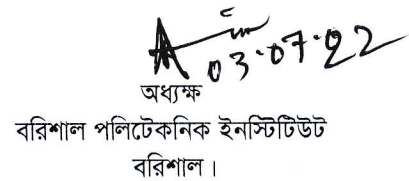 03.07.22
অধ্যক্ষ
বরিশাল পলিটেকনিক ইনস্টিটিউট
বরিশাল।